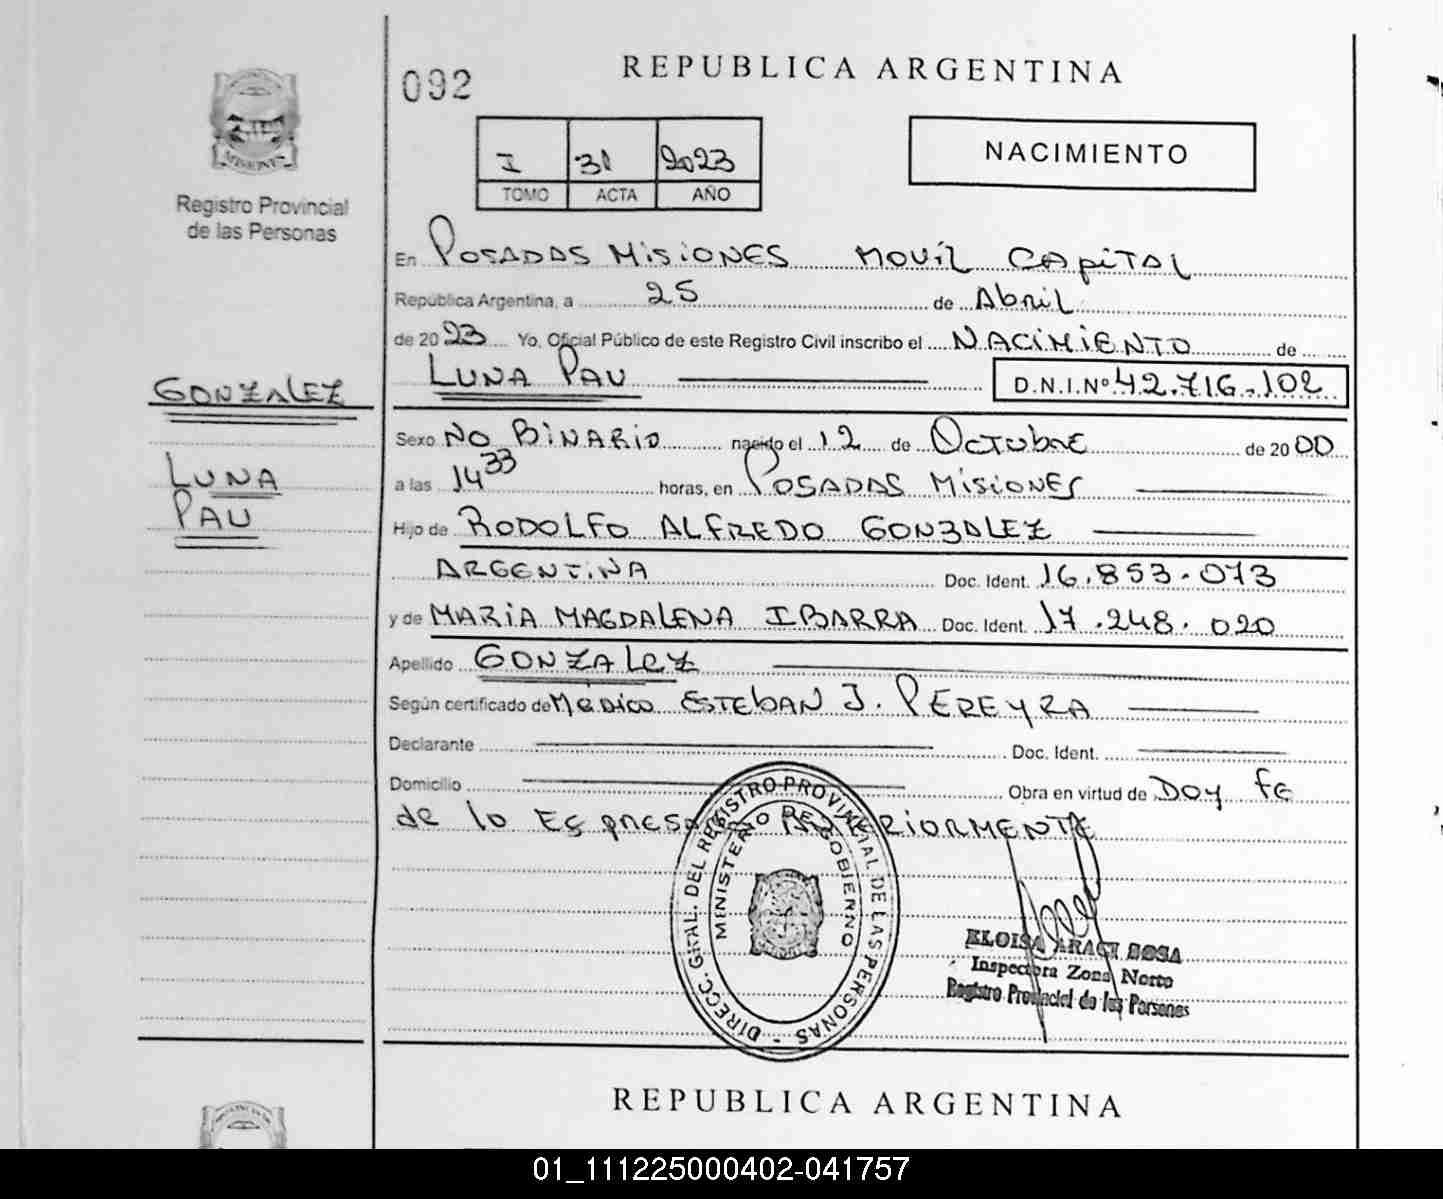 092
REPUBLICA ARGENTINA
MISIONES
Registro Provincial
de las Personas
I 31 2023
TOMO ACTA AÑO
NACIMIENTO
En POSADAS MISIONES MOVIL CAPITAL
República Argentina, a 25 de Abril
de 2023 Yo, Oficial Público de este Registro Civil inscribo el NACIMIENTO de
LUNA PAU D.N.I.Nº 42.716.102
GONZALEZ
LUNA
PAU
Sexo NO BINARIO nacido el 12 de OCTUBRE de 2000
a las 14 33 horas, en POSADAS MISIONES
Hijo de RODOLFO ALFREDO GONZALEZ
ARGENTINA Doc. Ident. 16.853.073
y de MARIA MAGDALENA IBARRA Doc. Ident. 17.248.020
Apellido GONZALEZ
Según certificado de Médico ESTEBAN J. PEREYRA
Declarante Doc. Ident.
Domicilio Obra en virtud de Doy FE
de lo Espresado ANTERIORMENTE
DIRECC. GRAL. DEL REGISTRO PROVINCIAL DE LAS PERSONAS -
MINISTERIO DE GOBIERNO
ELOISA ARACI SOSA
Inspectora Zona Norte
Registro Provincial de las Personas
REPUBLICA ARGENTINA
01_111225000402-041757